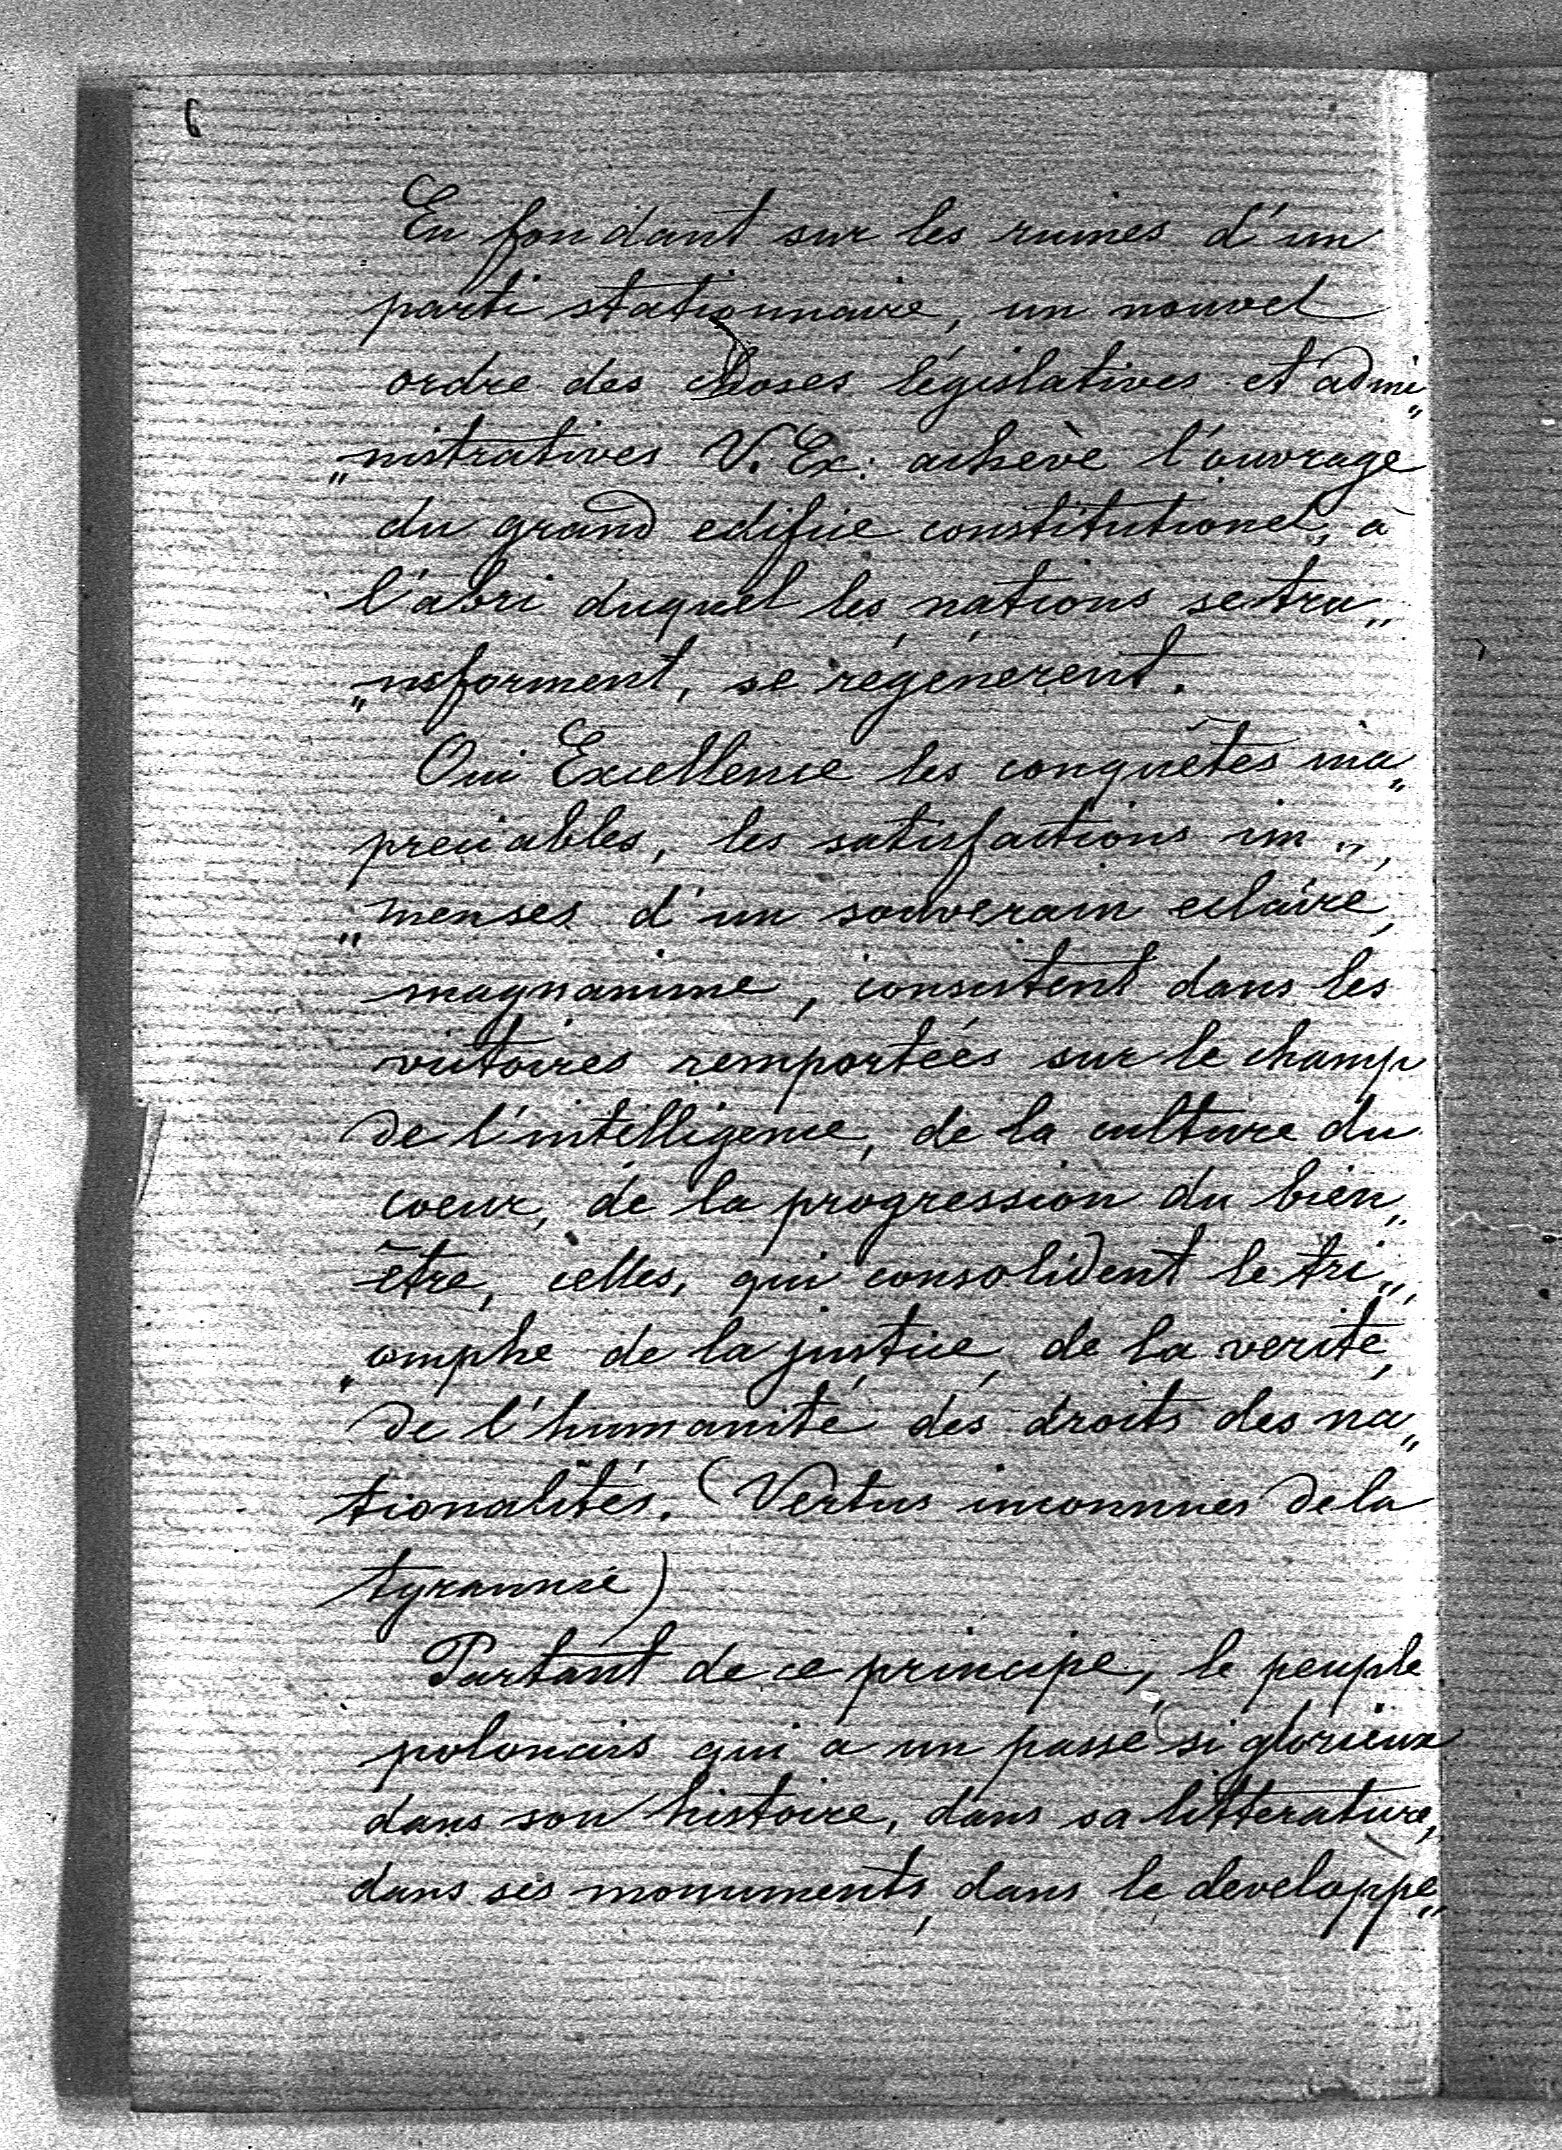 6
En fondant sur les ruines d'un
parti stationnaire, un nouvel
ordre des choses législatives et admi„
„nistratives V. Ex: achève l'ouvrage
du grand edifice constitutionel, à
l'abri duquel les nations se tra„
„nsforment, se régénerent.
Oui Excellence les conquêtes ina„
preciables, les satisfactions im„
„menses d'un souverain eclairé,
magnanime, consistent dans les
victoires remportées sur le champ
de l'intelligence, de la culture du
coeur, de la progression du bien„
être, celles, qui consolident le tri„
„omphe de la justice, de la verité,
de l'humanité des droits des na„
tionalités. (Vertus inconnues de la
tyrannie)
Partant de ce principe, le peuple
polonais qui a un passé si glorieux
dans son histoire, dans sa litterature,
dans ses monuments, dans le developpe„